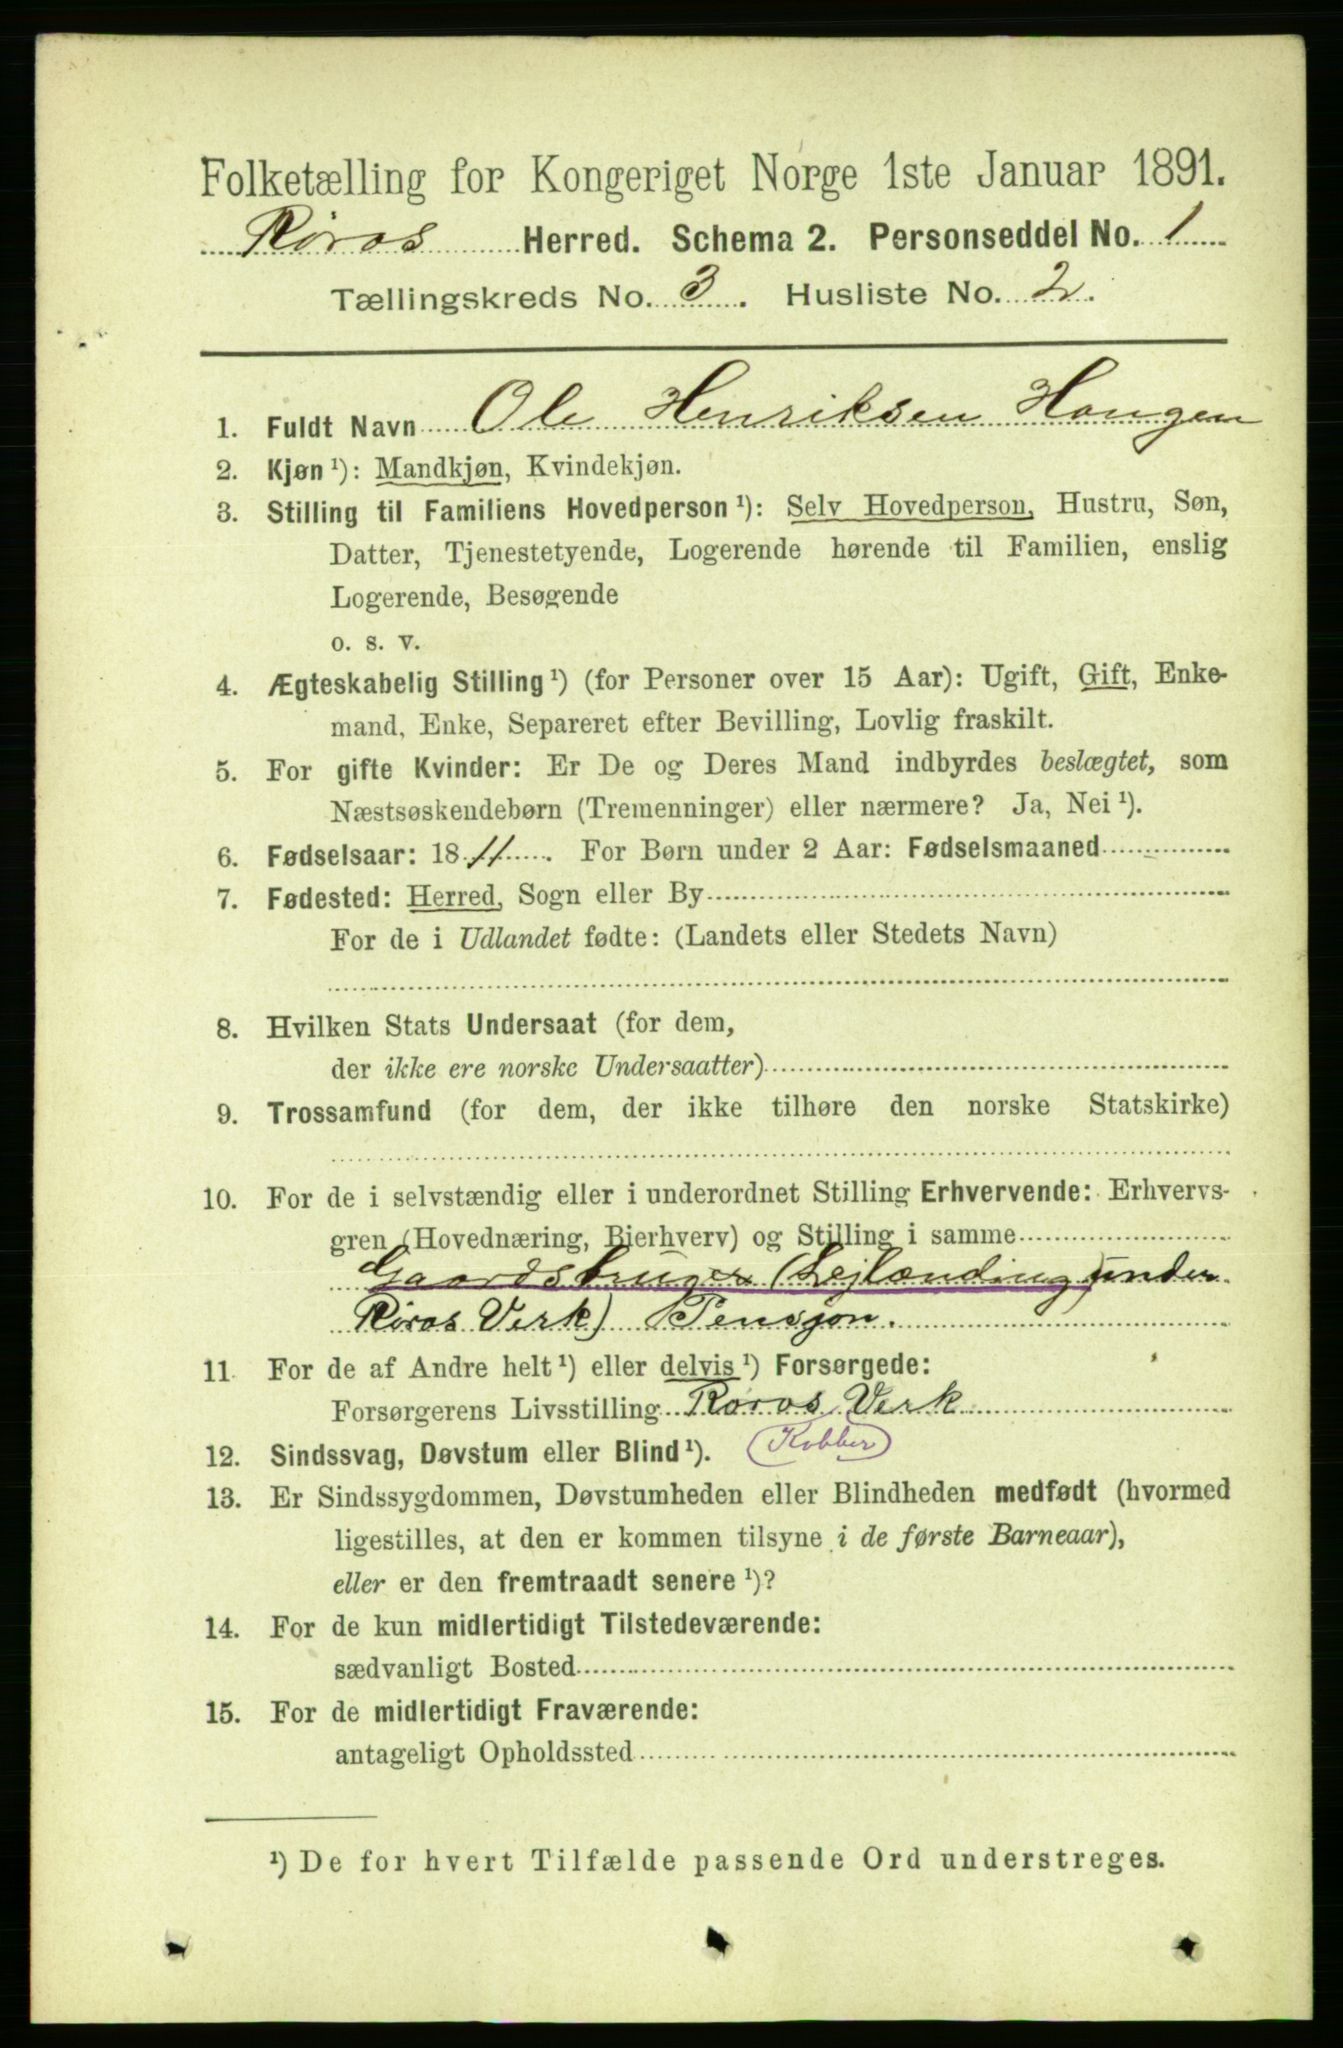 Folketælling for Kongeriget Norge 1ste Januar 1891.
Røros Herred. Schema 2. Personseddel No. 1
Tællingskreds No. 3. Husliste No. 2.
1. Fuldt Navn Ole Henriksen Haugen
2. Kjøn ¹): Mandkjøn, Kvindekjøn.
3. Stilling til Familiens Hovedperson ¹): Selv Hovedperson, Hustru, Søn,
Datter, Tjenestetyende, Logerende hørende til Familien, enslig
Logerende, Besøgende
o. s. v.
4. Ægteskabelig Stilling ¹) (for Personer over 15 Aar): Ugift, Gift, Enke-
mand, Enke, Separeret efter Bevilling, Lovlig fraskilt.
5. For gifte Kvinder: Er De og Deres Mand indbyrdes beslægtet, som
Næstsøskendebørn (Tremenninger) eller nærmere? Ja, Nei ¹).
6. Fødselsaar: 1811. For Børn under 2 Aar: Fødselsmaaned
7. Fødested: Herred, Sogn eller By
For de i Udlandet fødte: (Landets eller Stedets Navn)
8. Hvilken Stats Undersaat (for dem,
der ikke ere norske Undersaatter)
9. Trossamfund (for dem, der ikke tilhøre den norske Statskirke)
10. For de i selvstændig eller i underordnet Stilling Erhvervende: Erhvervs-
gren (Hovednæring, Bierhverv) og Stilling i samme
Gaardsbruger (Lejlænding under
Røros Verk) Pensjon.
11. For de af Andre helt ¹) eller delvis ¹) Forsørgede:
Forsørgerens Livsstilling Røros Verk
Kobber
12. Sindssvag, Døvstum eller Blind ¹).
13. Er Sindssygdommen, Døvstumheden eller Blindheden medfødt (hvormed
ligestilles, at den er kommen tilsyne i de første Barneaar),
eller er den fremtraadt senere ¹)?
14. For de kun midlertidigt Tilstedeværende:
sædvanligt Bosted
15. For de midlertidigt Fraværende:
antageligt Opholdssted
¹) De for hvert Tilfælde passende Ord understreges.